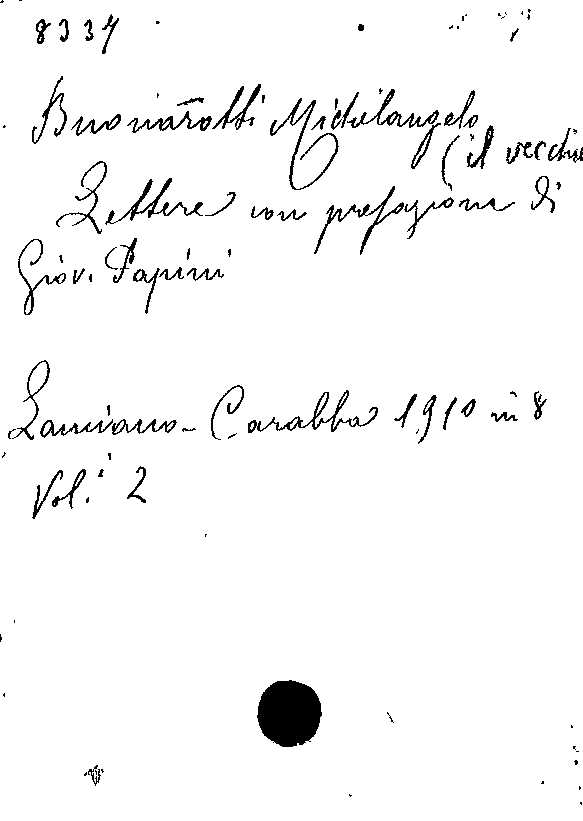 8334
Buonarotti Michelangelo
(il vecchio
Lettere con prefazione di
Giov. Papini
Lanciano - Carabba 1910 in 8
Vol.i 2